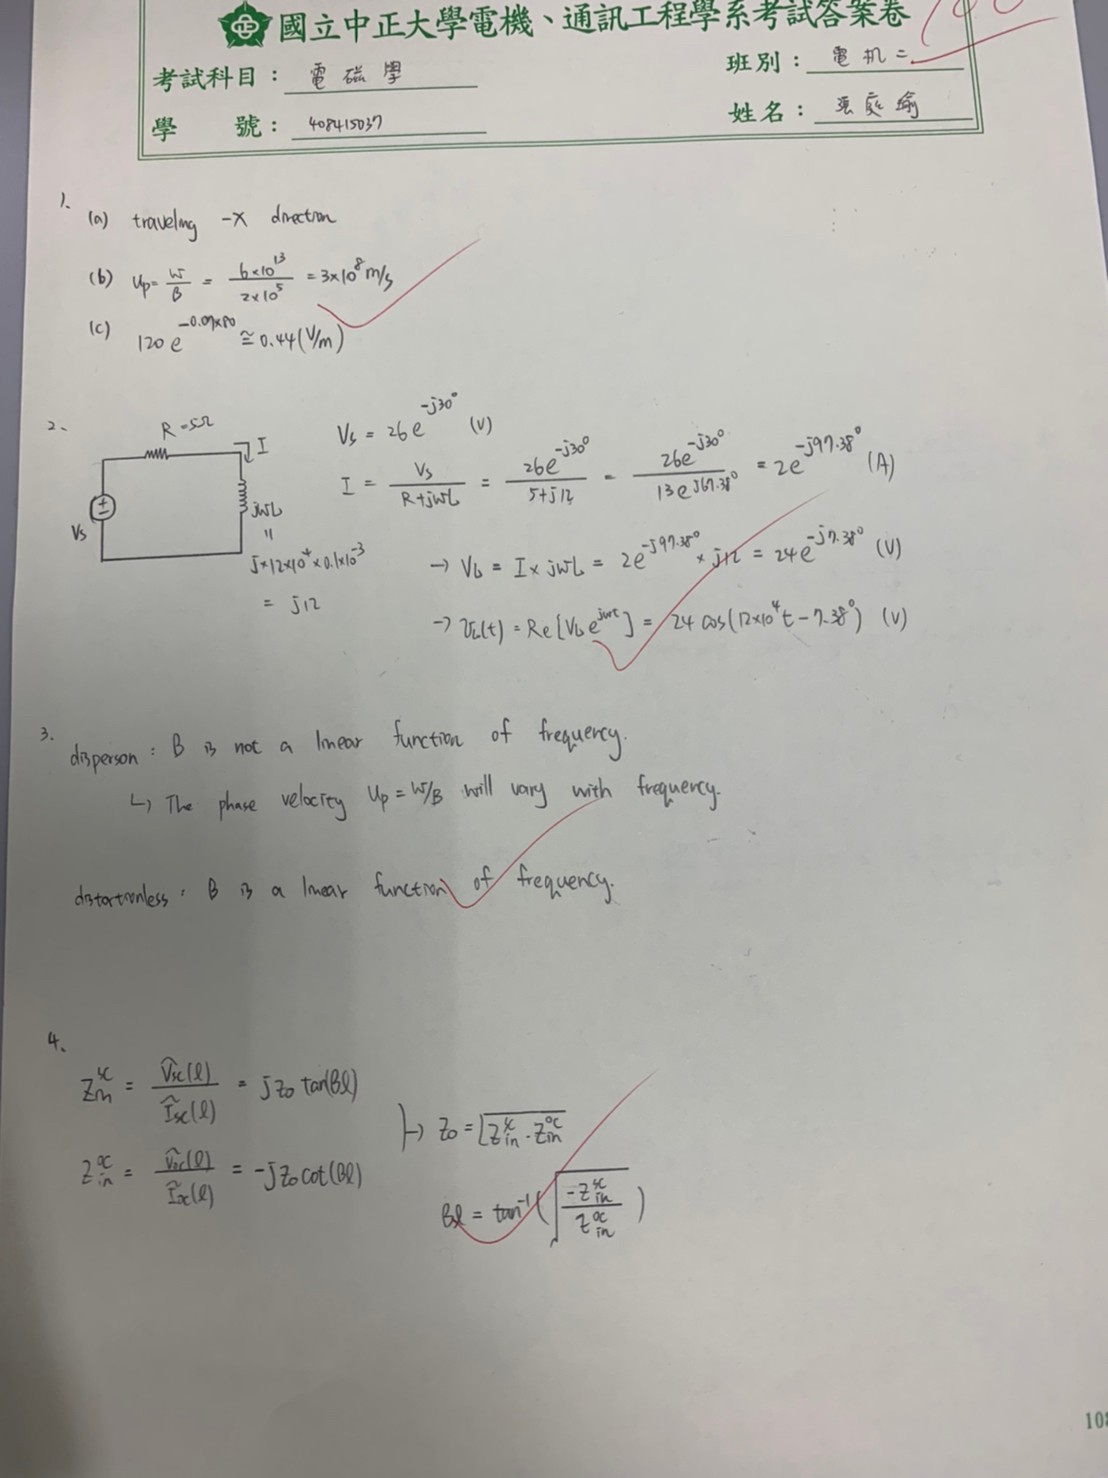 國立中正大學電機、通訊工程學系考試答案卷
考試科目： 電磁學
班別： 電机二
學 號： 408415037
姓名： 張庭瑜
1.
(a) traveling -x direction
(b) Up = w/β = 6×10^13 / 2×10^5 = 3×10^8 m/s
(c) 120 e^{-0.07×80} ≅ 0.44 (V/m)
2.
R=5Ω
I
Vs
jwL
=
j×12×10^4×0.1×10^-3
= j12
Vs = 26e^{-j30°} (V)
I = Vs / R+jwL = 26e^{-j30°} / 5+j12 = 26e^{-j30°} / 13e^{j67.38°} = 2e^{-j97.38°} (A)
→ VL = I × jwL = 2e^{-j97.38°} × j12 = 24e^{-j7.38°} (V)
→ VL(t) = Re[VL e^{jwt}] = 24 cos(12×10^4 t - 7.38°) (V)
3.
disperson : β is not a linear function of frequency.
↳ The phase velocity Up = w/β will vary with frequency.
distortionless : β is a linear function of frequency.
4.
Z_in^sc = Ṽsc(l) / Ĩsc(l) = jZ0 tan(βl)
Z_in^oc = Ṽoc(l) / Ĩoc(l) = -jZ0 cot(βl)
→ Z0 = √(Z_in^sc · Z_in^oc)
βl = tan^-1 (√(-Z_in^sc / Z_in^oc))
108